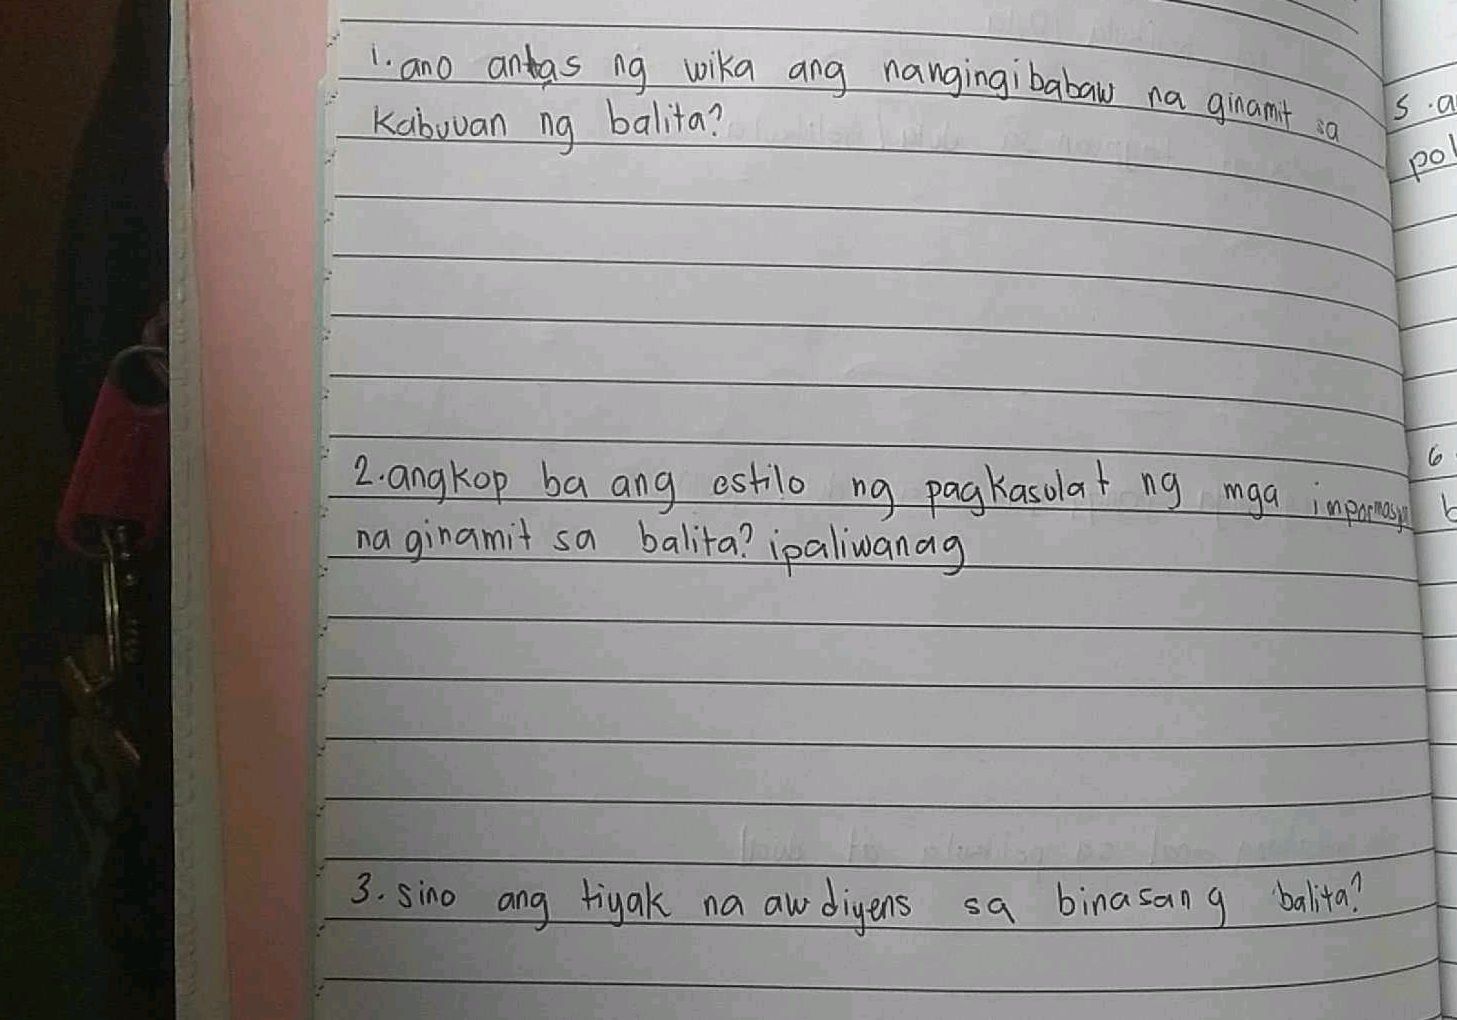 1. ano antas ng wika ang nangingibabaw na ginamit sa
kabuuan ng balita?
2. angkop ba ang estilo ng pagkasulat ng mga inpormasyn
na ginamit sa balita? ipaliwanag
3. sino ang tiyak na awdiyens sa binasang balita?
5. a
pol
6
b